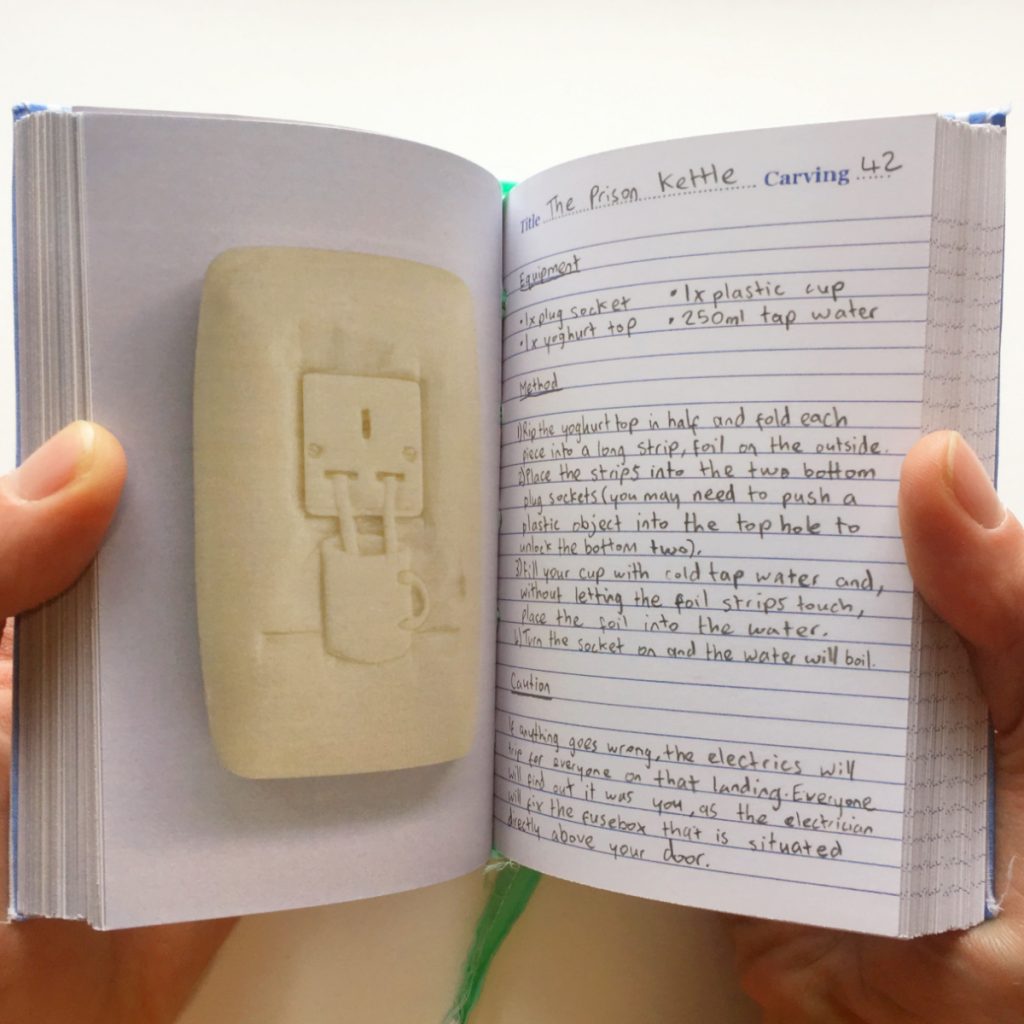 Title The Prison Kettle Carving 42
Equipment
• 1x plug socket • 1x plastic cup
• 1x yoghurt top • 250ml tap water
Method
1) Rip the yoghurt top in half and fold each
piece into a long strip, foil on the outside.
2) Place the strips into the two bottom
plug sockets (you may need to push a
plastic object into the top hole to
unlock the bottom two).
3) Fill your cup with cold tap water and,
without letting the foil strips touch,
place the foil into the water.
4) Turn the socket on and the water will boil.
Caution
If anything goes wrong, the electrics will
trip for everyone on that landing. Everyone
will find out it was you, as the electrician
will fix the fusebox that is situated
directly above your door.